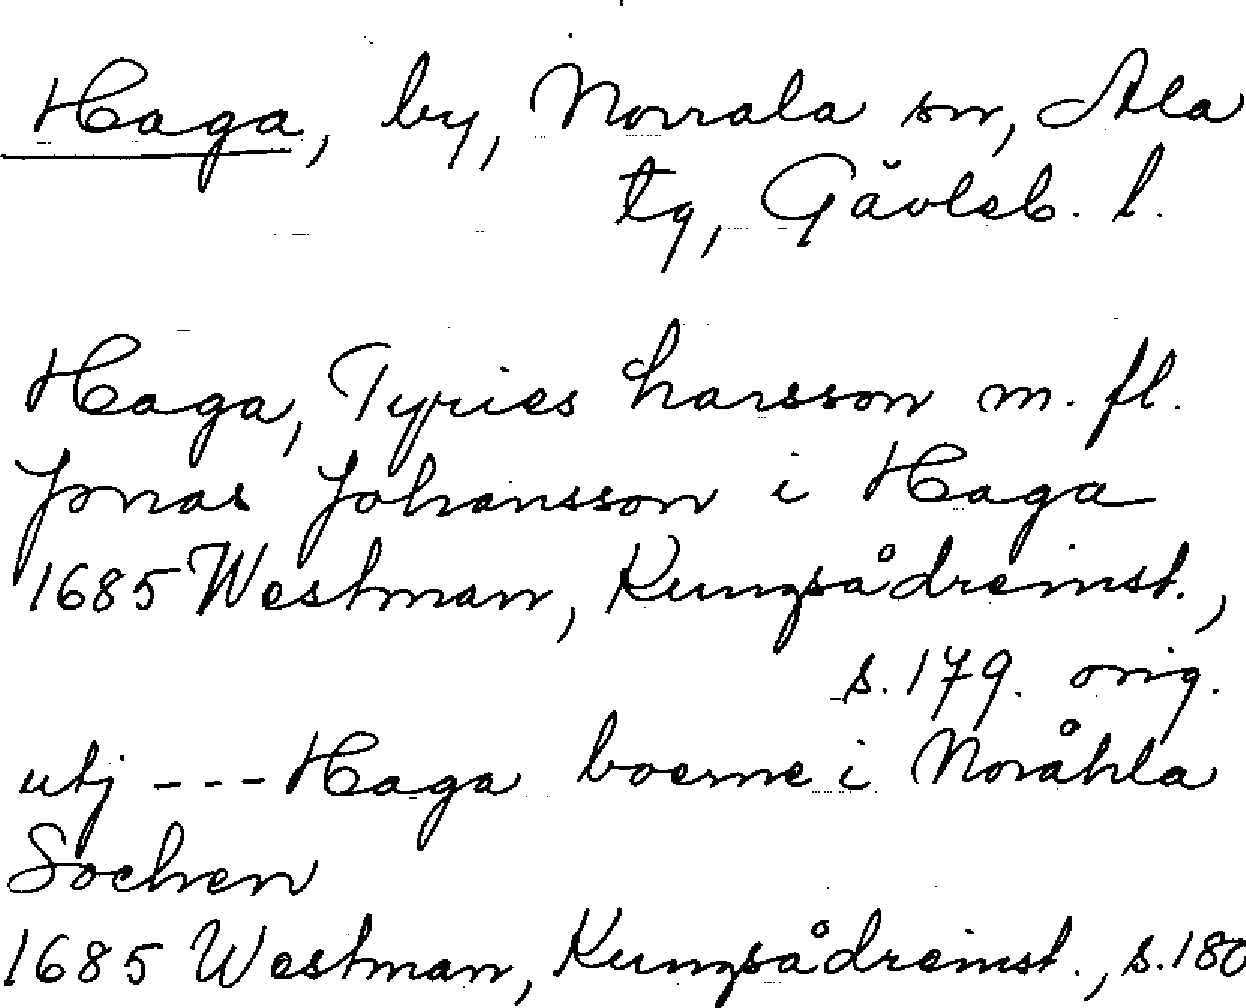 Haga, by, Norrala sn, Ala
tg, Gävleb. l.
Haga, Tyries Larsson m. fl.
Jonas Johansson i Haga
1685 Westman, Kungsådreinst.,
s. 179. orig.
utj --- Haga boerne i Noråhla
Sochen
1685 Westman, Kungsådreinst., s. 180